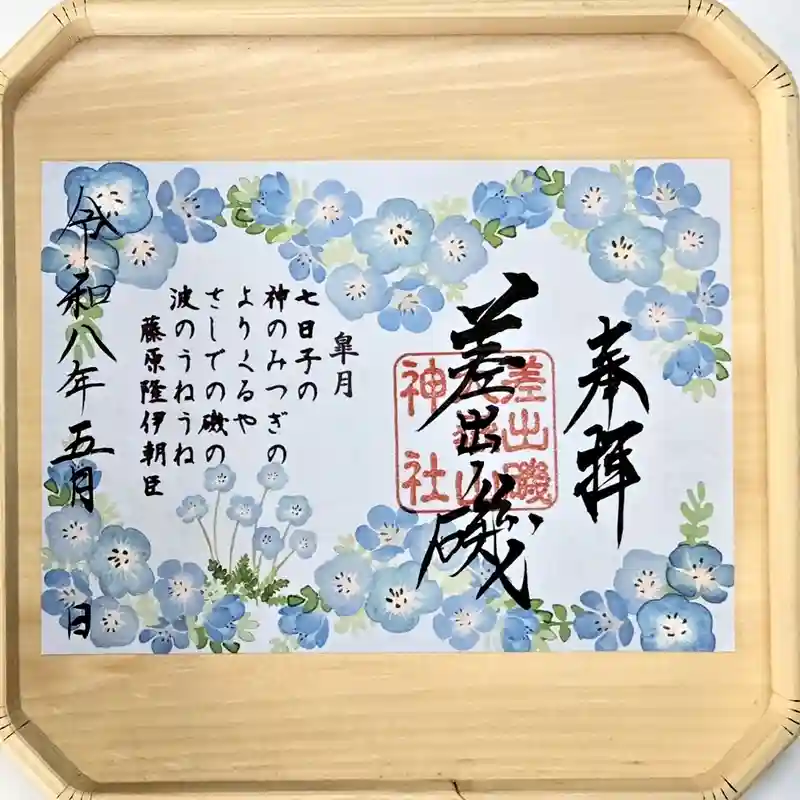 奉拝
差出ノ磯
差出磯
神社
皐月
七日子の
神のみつぎの
よりくるや
さしでの磯の
波のうねうね
藤原隆伊朝臣
令和八年五月 日